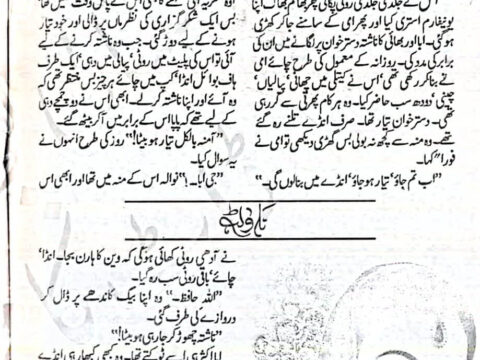 اس نے جلدی جلدی روٹی پکائی پھر بھاگم بھاگ اپنا
یونیفارم استری کیا اور پھر امی کے سامنے جا کر کھڑی
ہو گئی۔ ابا اور بھائی کا ناشتہ دسترخوان پر لگانے میں ان کی
برابر کی مدد کی۔ روزانہ کے معمول کی طرح چائے امی
نے بنا کر رکھی تھی، اس نے کیتلی میں چھانی، پیالیاں،
چینی، دودھ سب حاضر کیا۔ وہ ہر کام پھرتی سے کر رہی
تھی۔ دسترخوان تیار تھا۔ صرف انڈے تلنے رہ گئے
تھے۔ وہ منہ سے کچھ نہ بولی بس کھڑی دیکھی تو امی نے
فوراً کہا۔
"اب تم جاؤ، تیار ہو جاؤ، انڈے میں بنا لوں گی۔"
بس ایک شکر گزاری کی نظر ماں پر ڈالی اور خود تیار
ہونے کے لیے دوڑ گئی۔ جب وہ ناشتہ کرنے کے لیے
آئی تو اس کی پلیٹ میں روٹی، پیالی میں دہی، ایک طرف
ہاف بوائل انڈا، کپ میں چائے ہر چیز بس منتظر تھی کہ
وہ آئے اور اپنا ناشتہ کر لے۔ ابھی اس نے دو چمچے دہی
کے لیے تھے کہ پاپا اس کے برابر میں آ کر بیٹھ گئے۔
"آمنہ بالکل تیار ہو بیٹا!" روز کی طرح انہوں نے
یہ سوال کیا۔
"جی ابا۔!" نوالہ اس کے منہ میں تھا اور ابھی اس
ناولٹ
نے آدھی روٹی کھائی ہو گی کہ وین کا ہارن بجا۔ انڈا،
چائے، باقی روٹی سب رہ گیا۔
"اللہ حافظ۔" وہ اپنا بیگ کاندھے پر ڈال کر
دروازے کی طرف گئی۔
"ناشتہ چھوڑ کر جا رہی ہو بیٹا!"
ابا اکثر ہی اسے ٹوکتے تھا۔ وہ کبھی کبھار ہی انڈے